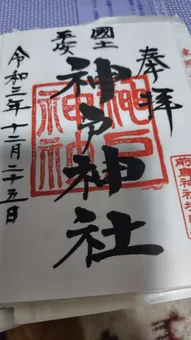 奉拝
國土
平安
神戸神社
神戸
神社
令和三年十二月二十五日
前鳥神社境